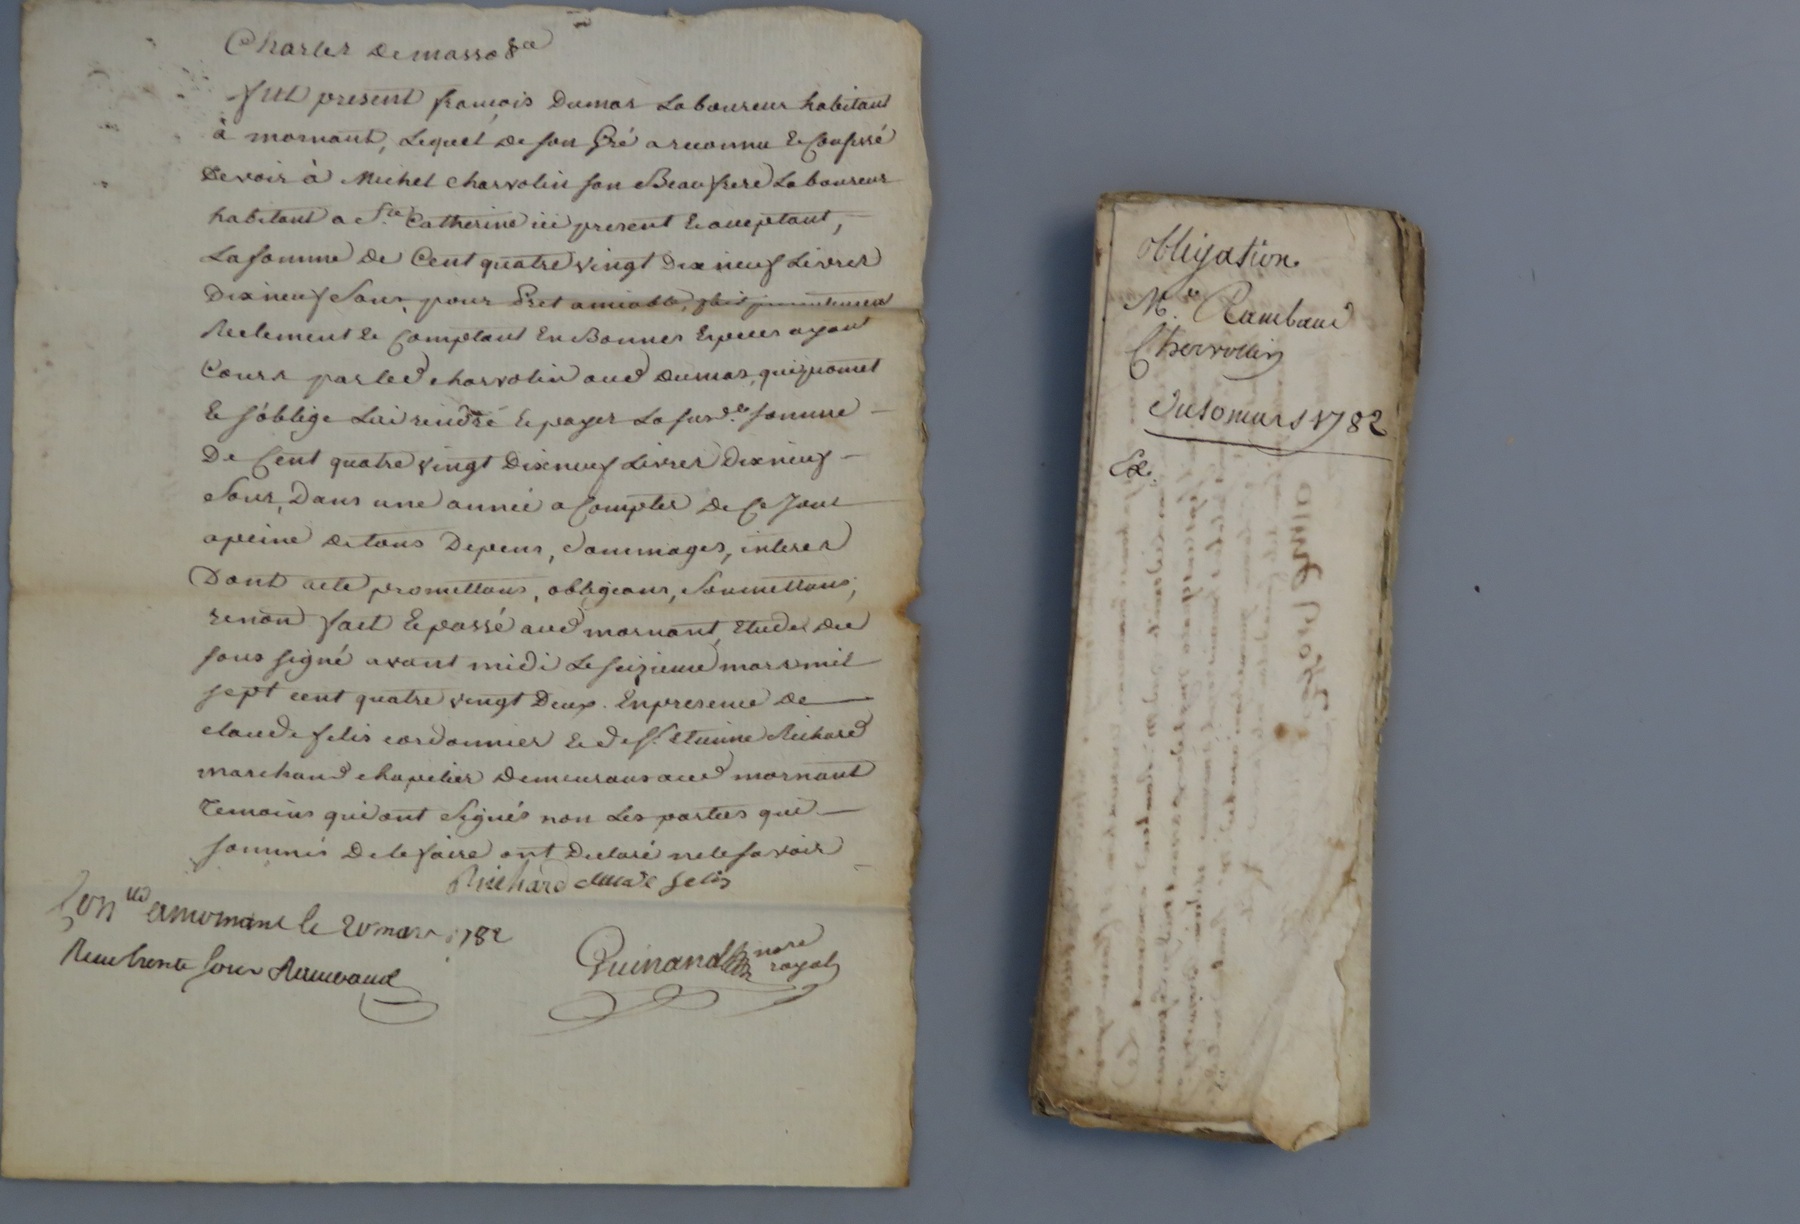 Charles Demasso &ca
fut present françois Dumas Laboureur habitant
à mornant, Lequel de son Gré a reconnu & Confessé
Devoir à Michel Charvolin son Beaufrere Laboureur
habitant a Ste Catherine ici present & acceptant,
La somme de Cent quatre vingt Dix neuf Livres
Dix neuf Sous, pour Pret amiable, fait
Reelement & Comptant En Bonnes Especes ayant
Cours par led Charvolin aud Dumas, qui promet
& s'oblige Lui rendre & payer La susde somme
De Cent quatre vingt Dix neuf Livres Dix neuf
Sous, Dans une année a Compter de Ce Jour
a peine de tous Depens, Dommages, interes
Dont acte promettans, obligeans, Soumettans,
renon fait & passé aud mornant, Etude du
sous signé avant midi Le seizieme mars mil
sept cent quatre vingt Deux. En presence de
claude felis cordonnier & de Sr. Etienne Richard
marchand chapelier Demeurans aud mornant
Temoins qui ont Signés non Les parties qui
sommés De le faire ont Declaré ne le savoir
Richard claude felis
Con lle a mornant le 20 mars 1782
Recu trente sous Rambaud
Guinand nore
royal
obligation
Me. Rambaud
Chervollin
du 16 mars 1782
Ex.